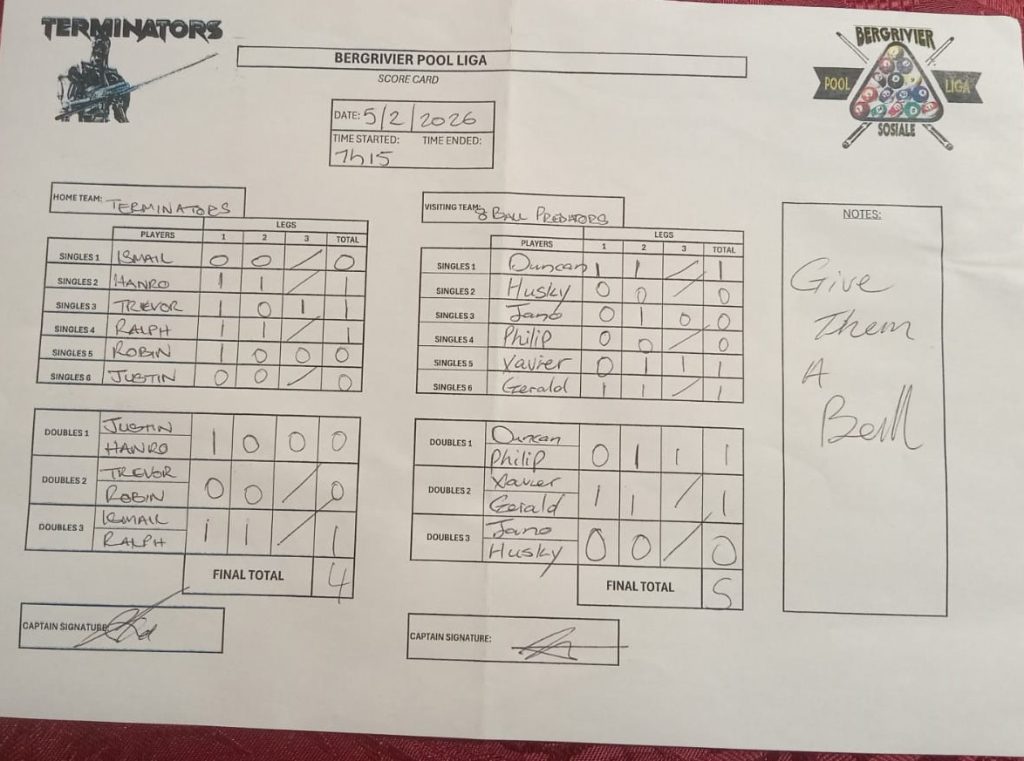 TERMINATORS
BERGRIVIER
POOL LIGA
SOSIALE
BERGRIVIER POOL LIGA
SCORE CARD
DATE: 5/2/2026
TIME STARTED: TIME ENDED:
7h15
HOME TEAM: TERMINATORS
LEGS
PLAYERS 1 2 3 TOTAL
SINGLES 1 ISMAIL 0 0 / 0
SINGLES 2 HANRO 1 1 / 1
SINGLES 3 TREVOR 1 0 1 1
SINGLES 4 RALPH 1 1 / 1
SINGLES 5 ROBIN 1 0 0 0
SINGLES 6 JUSTIN 0 0 / 0
DOUBLES 1 JUSTIN
HANRO 1 0 0 0
DOUBLES 2 TREVOR
ROBIN 0 0 / 0
DOUBLES 3 ISMAIL
RALPH 1 1 / 1
FINAL TOTAL 4
CAPTAIN SIGNATURE:
VISITING TEAM: 8 BALL PREDATORS
LEGS
PLAYERS 1 2 3 TOTAL
SINGLES 1 Duncan 1 1 / 1
SINGLES 2 Husky 0 0 / 0
SINGLES 3 Jano 0 1 0 0
SINGLES 4 Philip 0 0 / 0
SINGLES 5 Xavier 0 1 1 1
SINGLES 6 Gerald 1 1 / 1
DOUBLES 1 Duncan
Philip 0 1 1 1
DOUBLES 2 Xavier
Gerald 1 1 / 1
DOUBLES 3 Jano
Husky 0 0 / 0
FINAL TOTAL 5
CAPTAIN SIGNATURE:
NOTES:
Give
Them
A
Bell